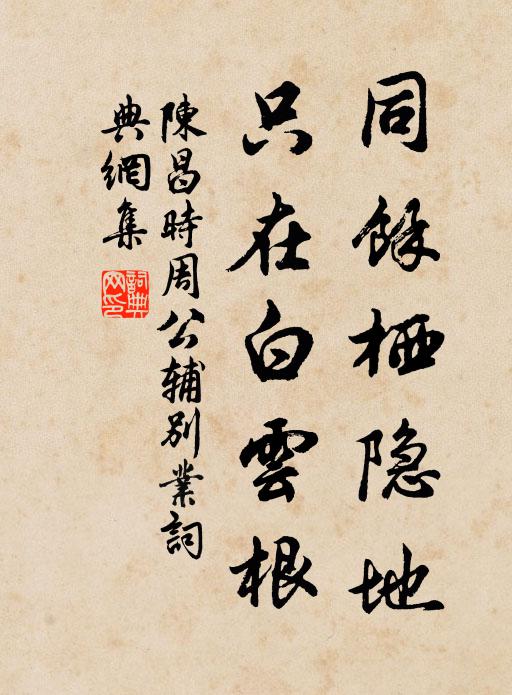 同餘栖隐地
只在白雲根
陳昌時周公辅别業詞
典網集
詞典网印